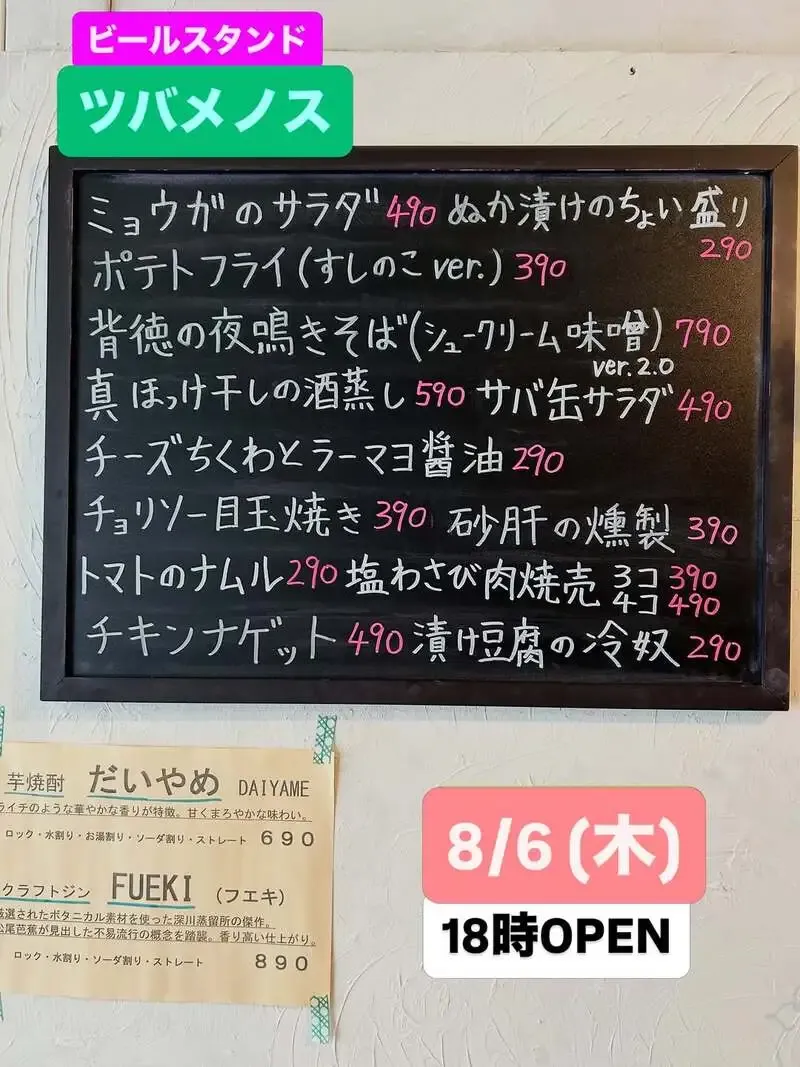 ビールスタンド
ツバメノス
ミョウガのサラダ 490 ぬか漬けのちょい盛り 290
ポテトフライ(すしのこ ver.) 390
背徳の夜鳴きそば(シュークリーム味噌) 790
ver.2.0
真ほっけ干しの酒蒸し 590 サバ缶サラダ 490
チーズちくわとラーマヨ醤油 290
チョリソー目玉焼き 390 砂肝の燻製 390
トマトのナムル 290 塩わさび肉焼売 3コ 390
4コ 490
チキンナゲット 490 漬け豆腐の冷奴 290
芋焼酎 だいやめ DAIYAME
ライチのような華やかな香りが特徴。甘くまろやかな味わい。
ロック・水割り・お湯割り・ソーダ割り・ストレート 690
クラフトジン FUEKI (フエキ)
厳選されたボタニカル素材を使った深川蒸留所の傑作。
松尾芭蕉が見出した不易流行の概念を踏襲。香り高い仕上がり。
ロック・水割り・ソーダ割り・ストレート 890
8/6(木)
18時OPEN